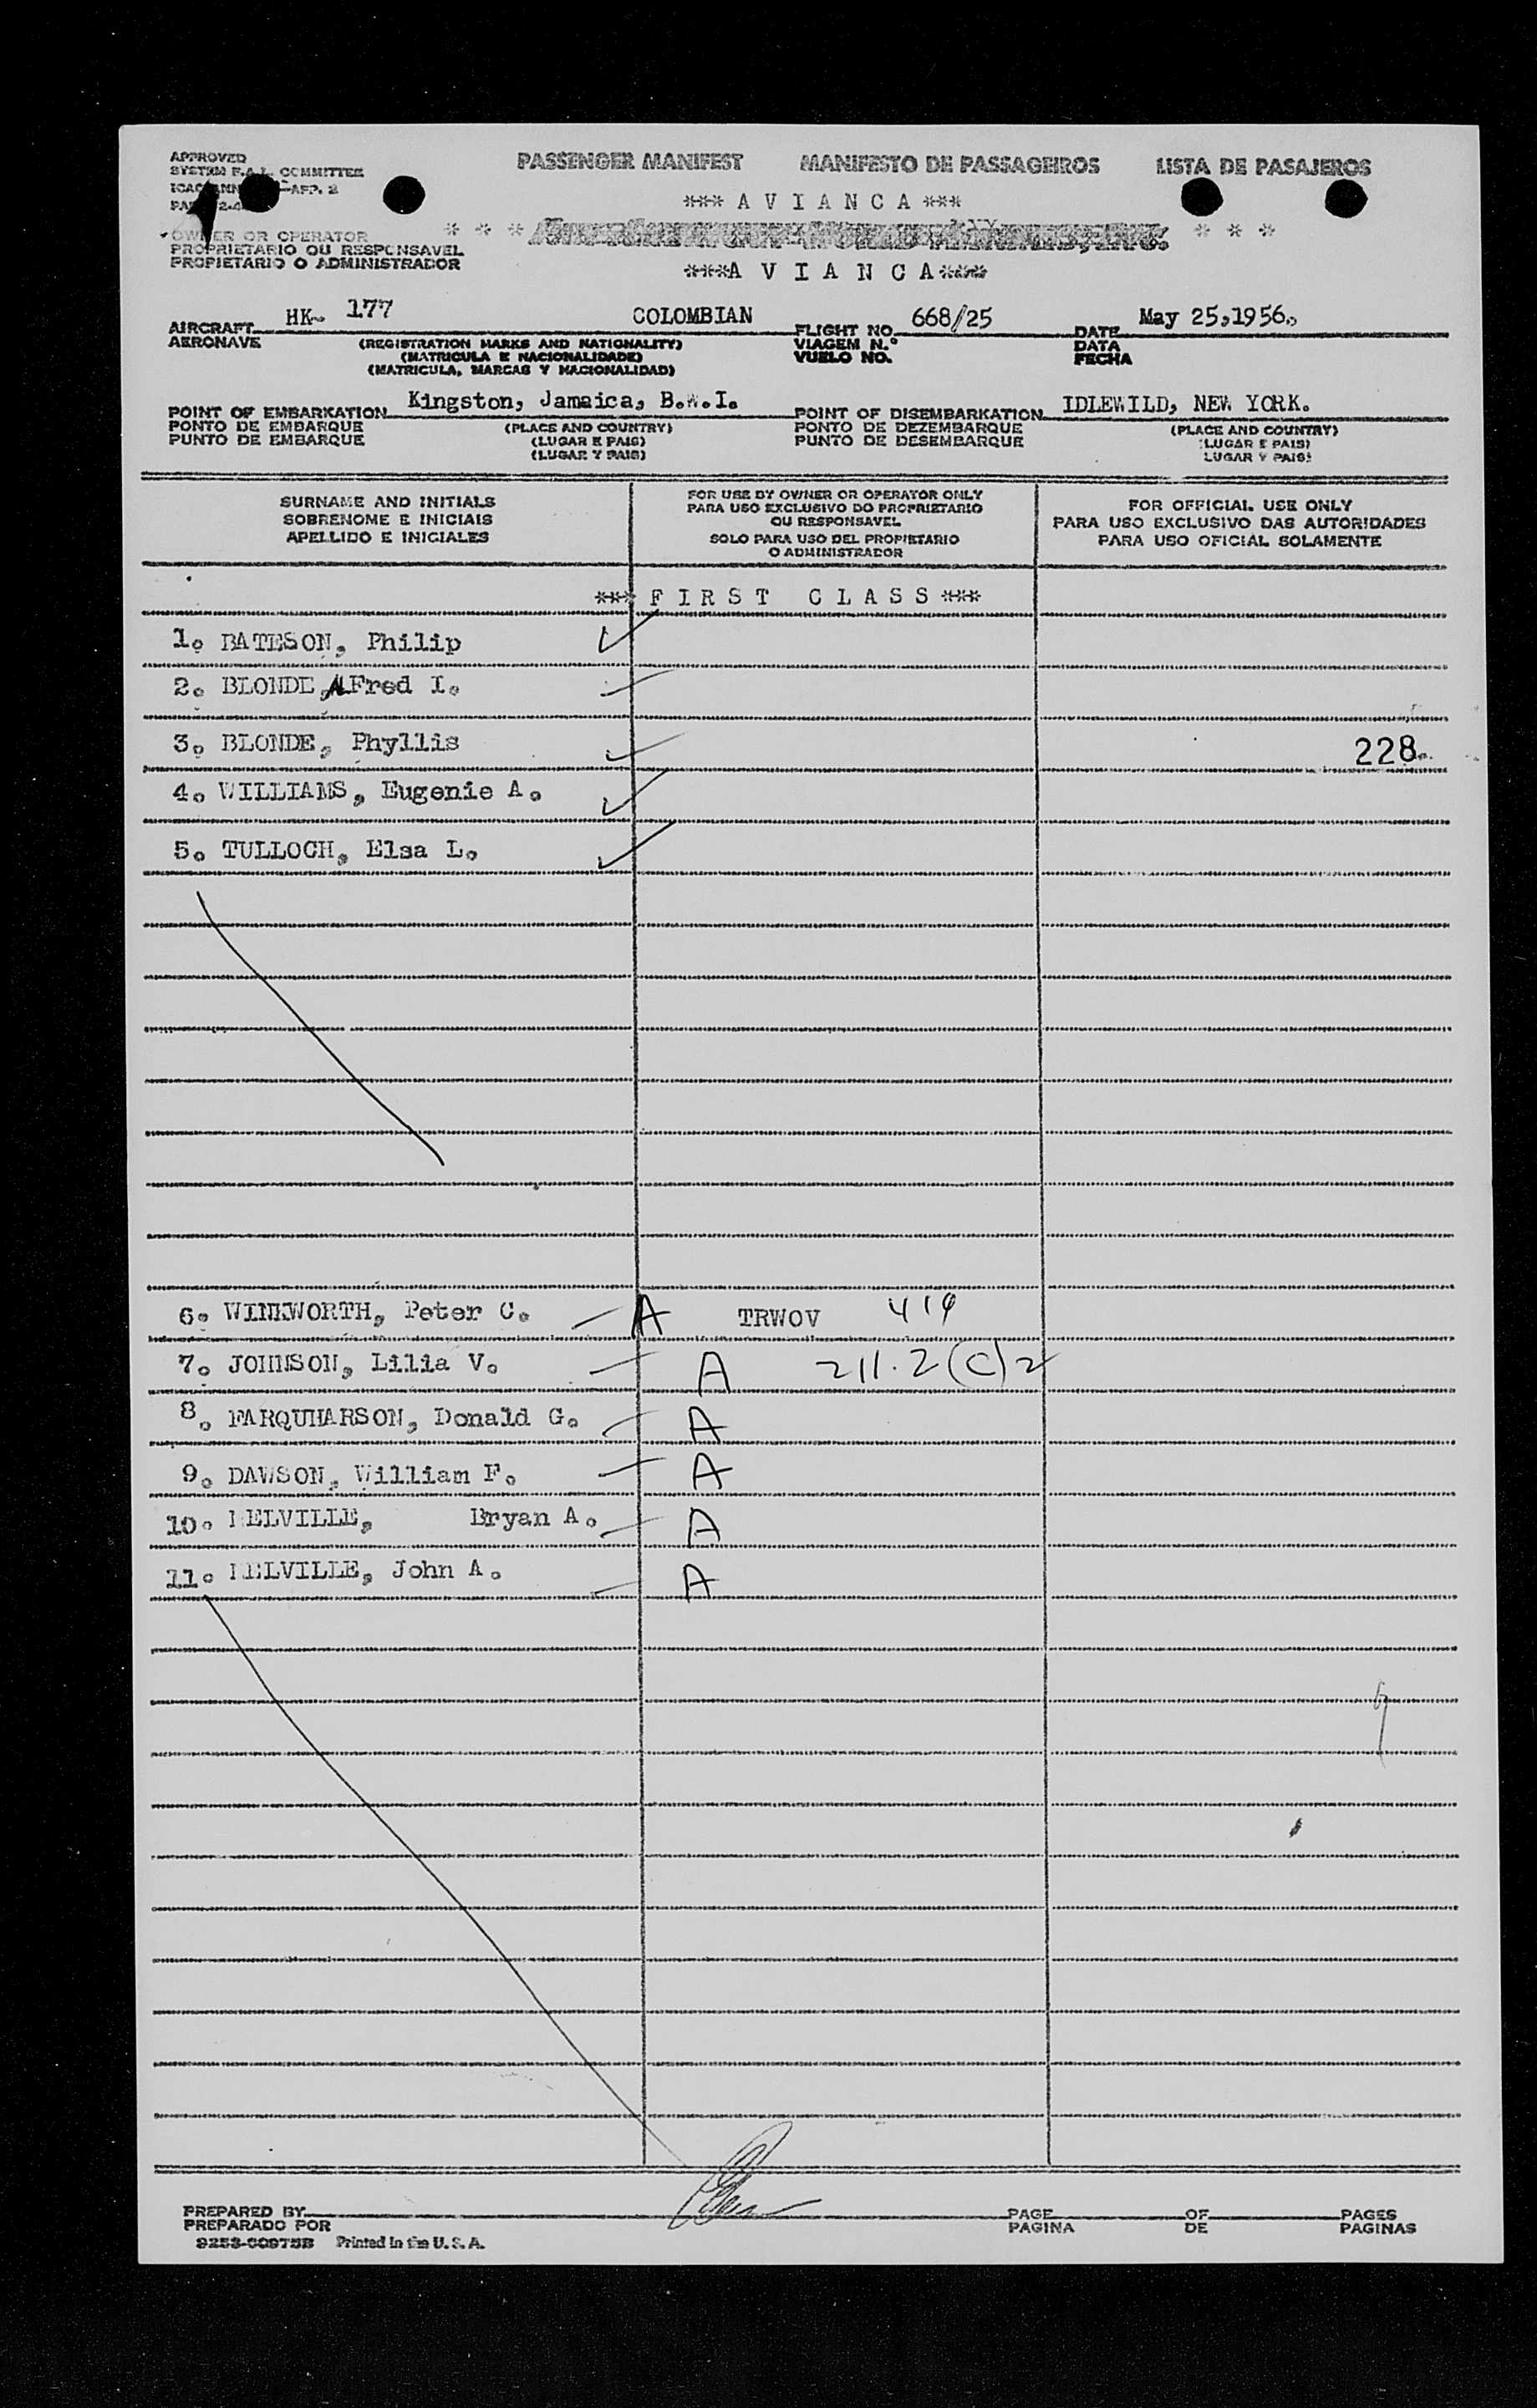 APPROVED
SYSTEM F.A.L. COMMITTEE
APP. 2
PASSENGER MANIFEST MANIFESTO DE PASSAGEIROS LISTA DE PASAJEROS
*** A V I A N C A ***
OWNER OR OPERATOR * * * * * *
PROPRIETARIO OU RESPONSAVEL
PROPIETARIO O ADMINISTRADOR
***A V I A N C A***
AIRCRAFT HK- 177 COLOMBIAN FLIGHT NO. 668/25 DATE May 25,1956.
AERONAVE (REGISTRATION MARKS AND NATIONALITY) VIAGEM N.º DATA
(MATRICULA E NACIONALIDADE) VUELO NO. FECHA
(MATRICULA, MARCAS Y NACIONALIDAD)
POINT OF EMBARKATION Kingston, Jamaica, B.W.I. POINT OF DISEMBARKATION IDLEWILD, NEW YORK.
PONTO DE EMBARQUE (PLACE AND COUNTRY) PONTO DE DEZEMBARQUE (PLACE AND COUNTRY)
PUNTO DE EMBARQUE (LUGAR E PAIS) PUNTO DE DESEMBARQUE (LUGAR E PAIS)
(LUGAR Y PAIS) LUGAR Y PAIS)
SURNAME AND INITIALS
SOBRENOME E INICIAIS
APELLIDO E INICIALES
FOR USE BY OWNER OR OPERATOR ONLY
PARA USO EXCLUSIVO DO PROPRIETARIO
OU RESPONSAVEL
SOLO PARA USO DEL PROPIETARIO
O ADMINISTRADOR
FOR OFFICIAL USE ONLY
PARA USO EXCLUSIVO DAS AUTORIDADES
PARA USO OFICIAL SOLAMENTE
*** F I R S T C L A S S ***
1. BATESON, Philip
2. BLONDE, AFred I.
3. BLONDE, Phyllis 228
4. WILLIAMS, Eugenie A.
5. TULLOCH, Elsa L.
6. WINKWORTH, Peter C. A TRWOV 414
7. JOHNSON, Lilia V. A 211.2(c)2
8. FARQUHARSON, Donald G. A
9. DAWSON, William F. A
10. MELVILLE, Bryan A. A
11. MELVILLE, John A. A
PREPARED BY PAGE OF PAGES
PREPARADO POR PAGINA DE PAGINAS
9253-00975B Printed in the U. S. A.